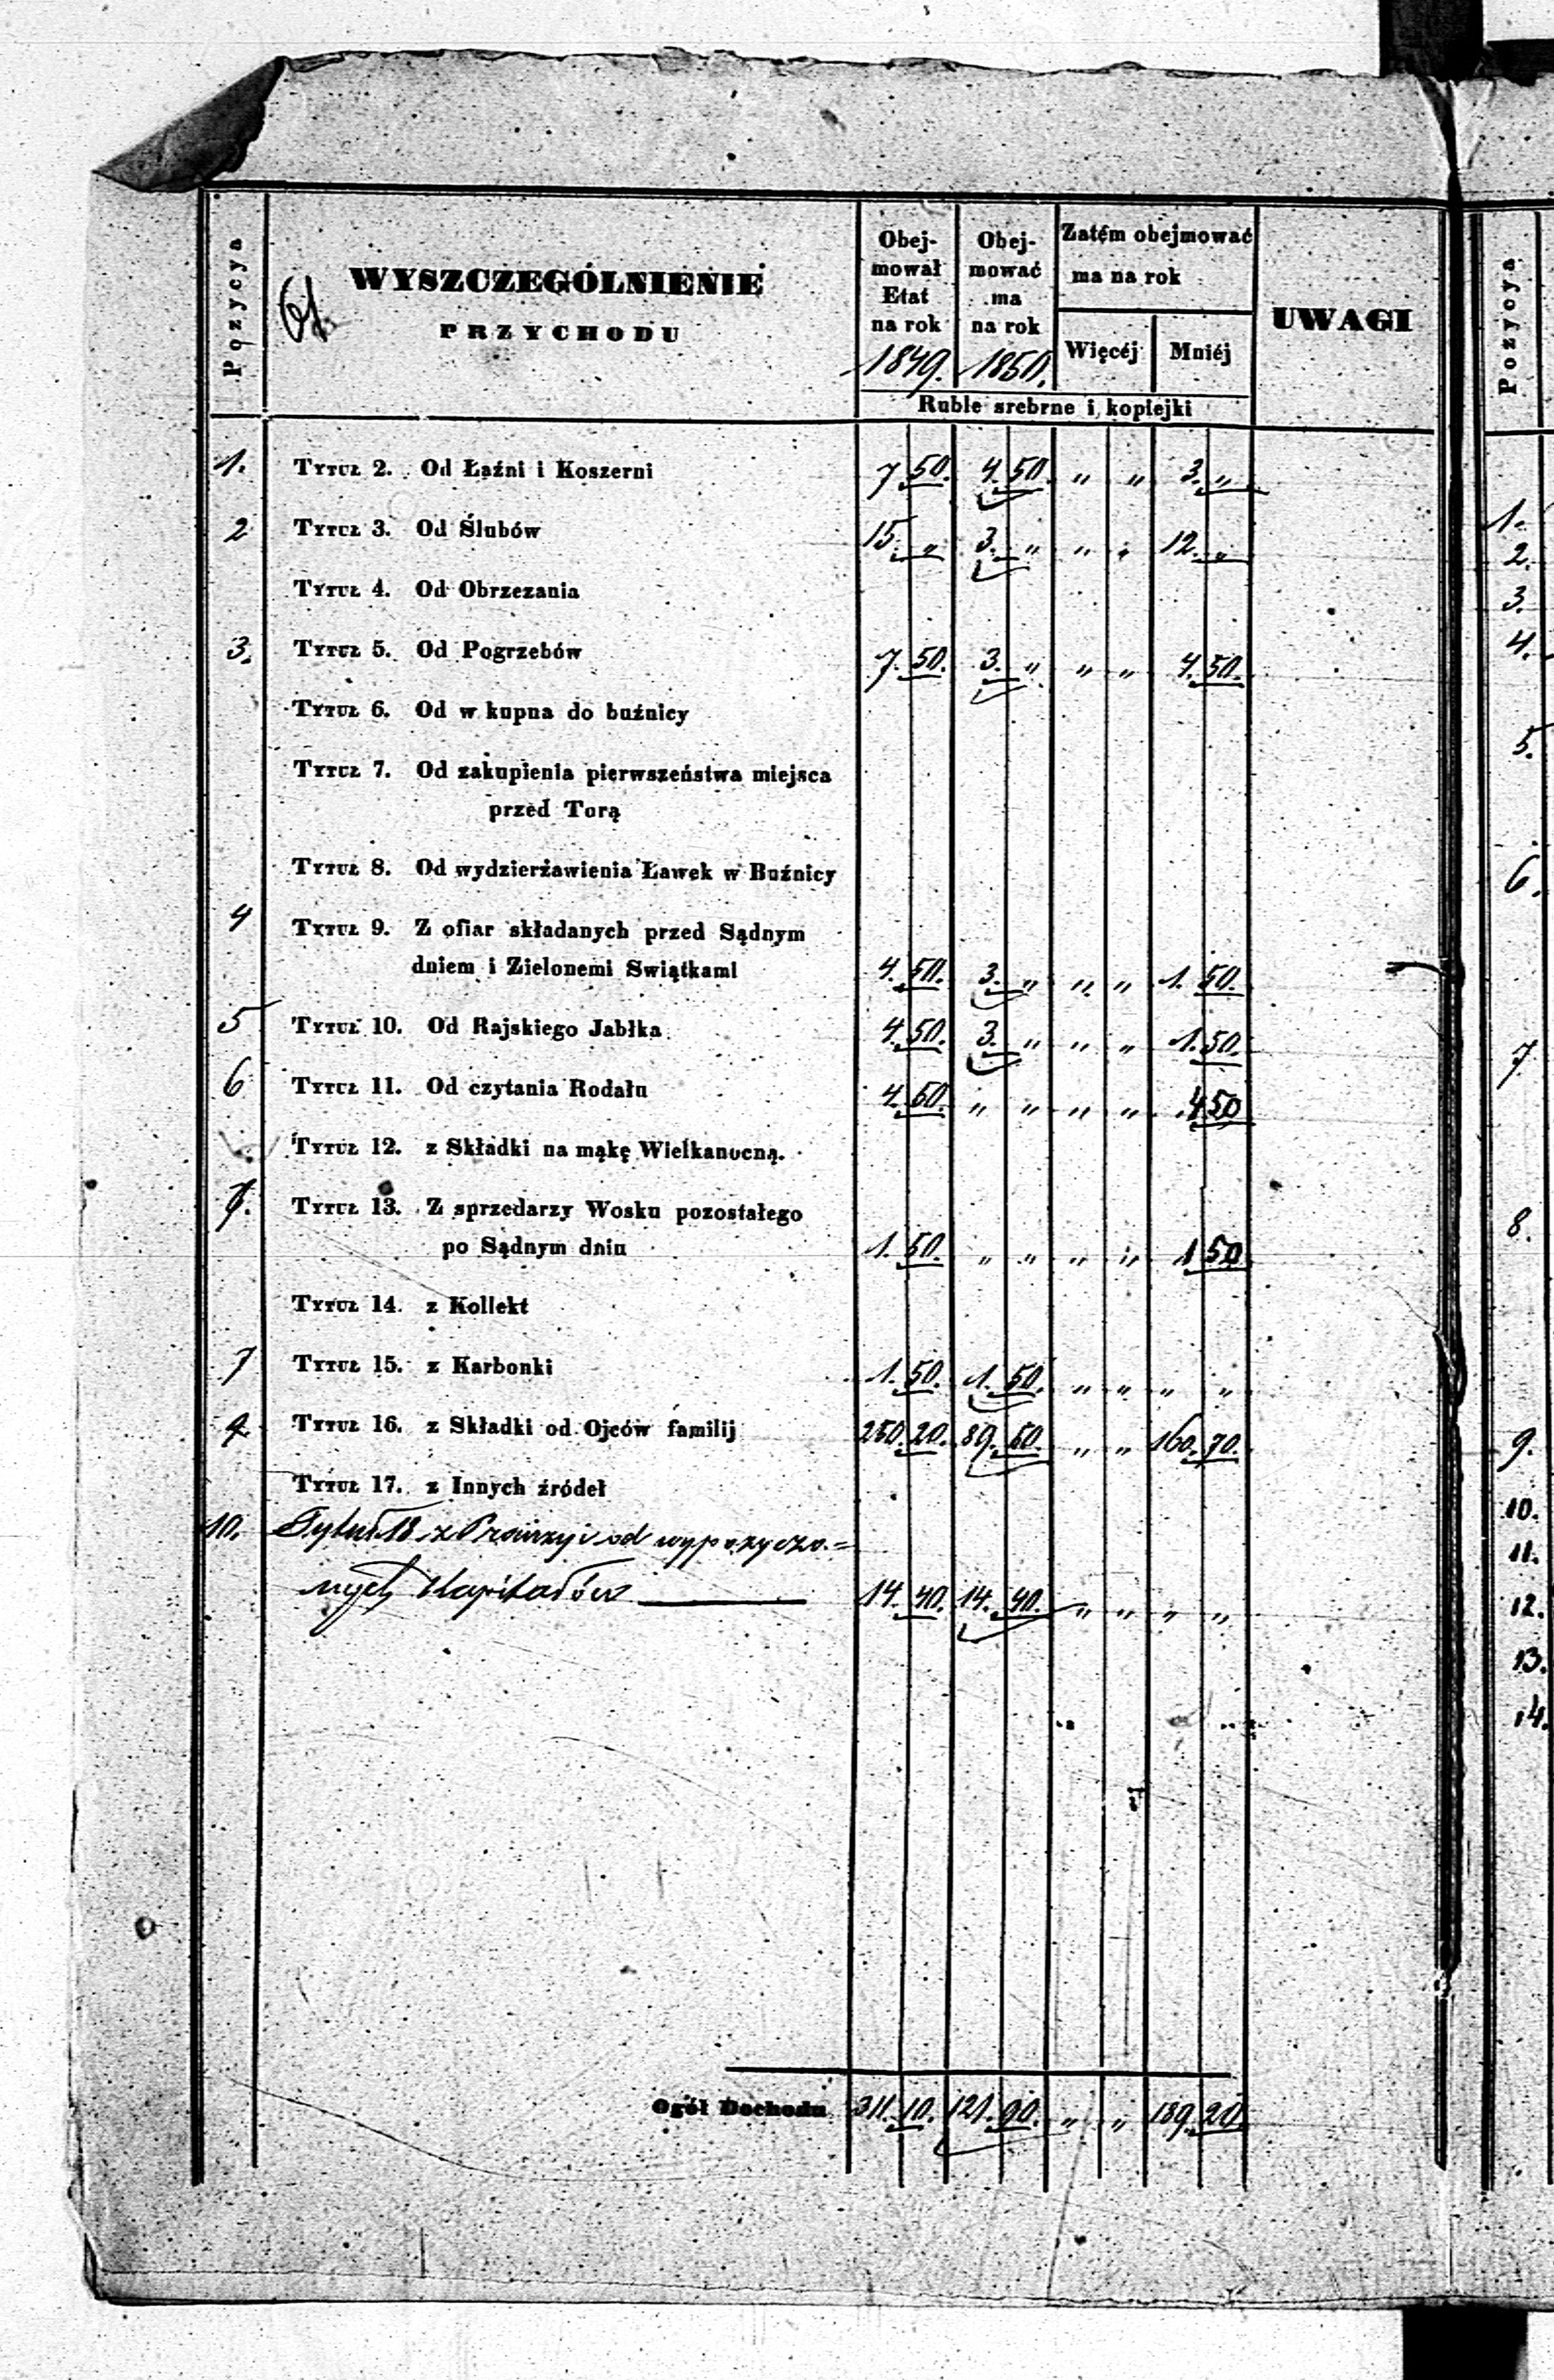 Pozycya
WYSZCZEGÓLNIENIE
PRZYCHODU
Obej-
mował
Etat
na rok
1849.
Obej-
mować
ma
na rok
1850.
Zatém obejmować
ma na rok
Więcéj
Mniéj
Ruble srebrne i kopiejki
UWAGI
1. Tytuł 2. Od Łaźni i Koszerni 7 50. 4. 50. „ „ 3. „
2 Tytuł 3. Od Ślubów 15. „ 3. „ „ „ 12. „
Tytuł 4. Od Obrzezania
3. Tytuł 5. Od Pogrzebów 7. 50. 3. „ „ „ 4. 50.
Tytuł 6. Od w kupna do buźnicy
Tytuł 7. Od zakupienia pierwszeństwa miejsca
przed Torą
Tytuł 8. Od wydzierżawienia Ławek w Buźnicy
4 Tytuł 9. Z ofiar składanych przed Sądnym
dniem i Zielonemi Swiątkami 4. 50. 3. „ „ „ 1. 50.
5 Tytuł 10. Od Rajskiego Jabłka 4. 50. 3. „ „ „ 1. 50.
6 Tytuł 11. Od czytania Rodału 4. 50. „ „ „ „ 4 50
Tytuł 12. z Składki na mąkę Wielkanocną.
7. Tytuł 13. Z sprzedarzy Wosku pozostałego
po Sądnym dniu 1. 50. „ „ „ „ 1 50
Tytuł 14. z Kollekt
Tytuł 15. z Karbonki 1. 50. 1. 50. „ „ „ „
Tytuł 16. z Składki od Ojców familij 250. 20. 89. 50. „ „ 160. 70.
Tytuł 17. z Innych źródeł
10. Tytuł 18 z Prowizyi od wypożyczo.=
nych Kapitałów 14. 40. 14. 40. „ „ „ „
Ogół Dochodu 311. 10. 121. 90. „ „ 189. 20.
Pozycya
1.
2.
3.
4.
5.
6.
7
8.
9.
10.
11.
12.
13.
14.